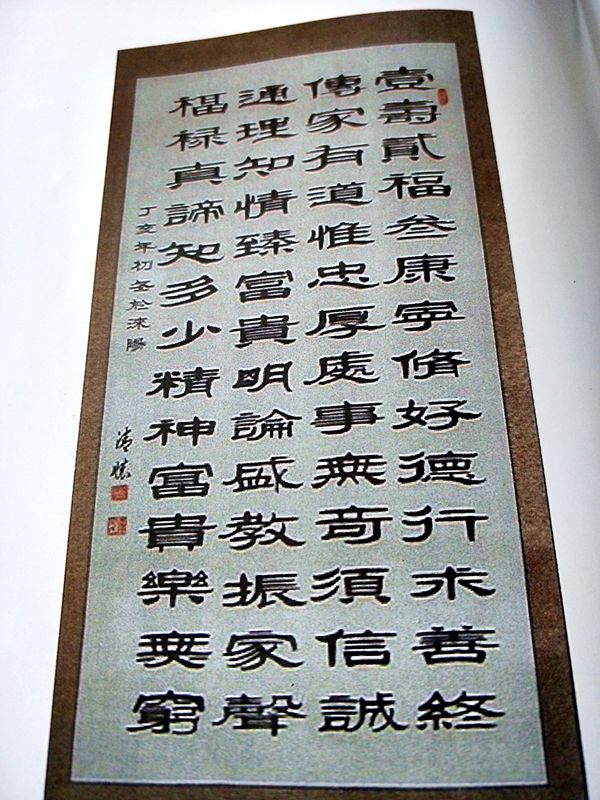 壹壽貳福叁康寧脩好德行求善終
傳家有道惟忠厚處事無奇須信誠
通理知情臻富貴明論盛教振家聲
福祿真諦知多少精神富貴樂無窮
丁亥年初冬於溧陽